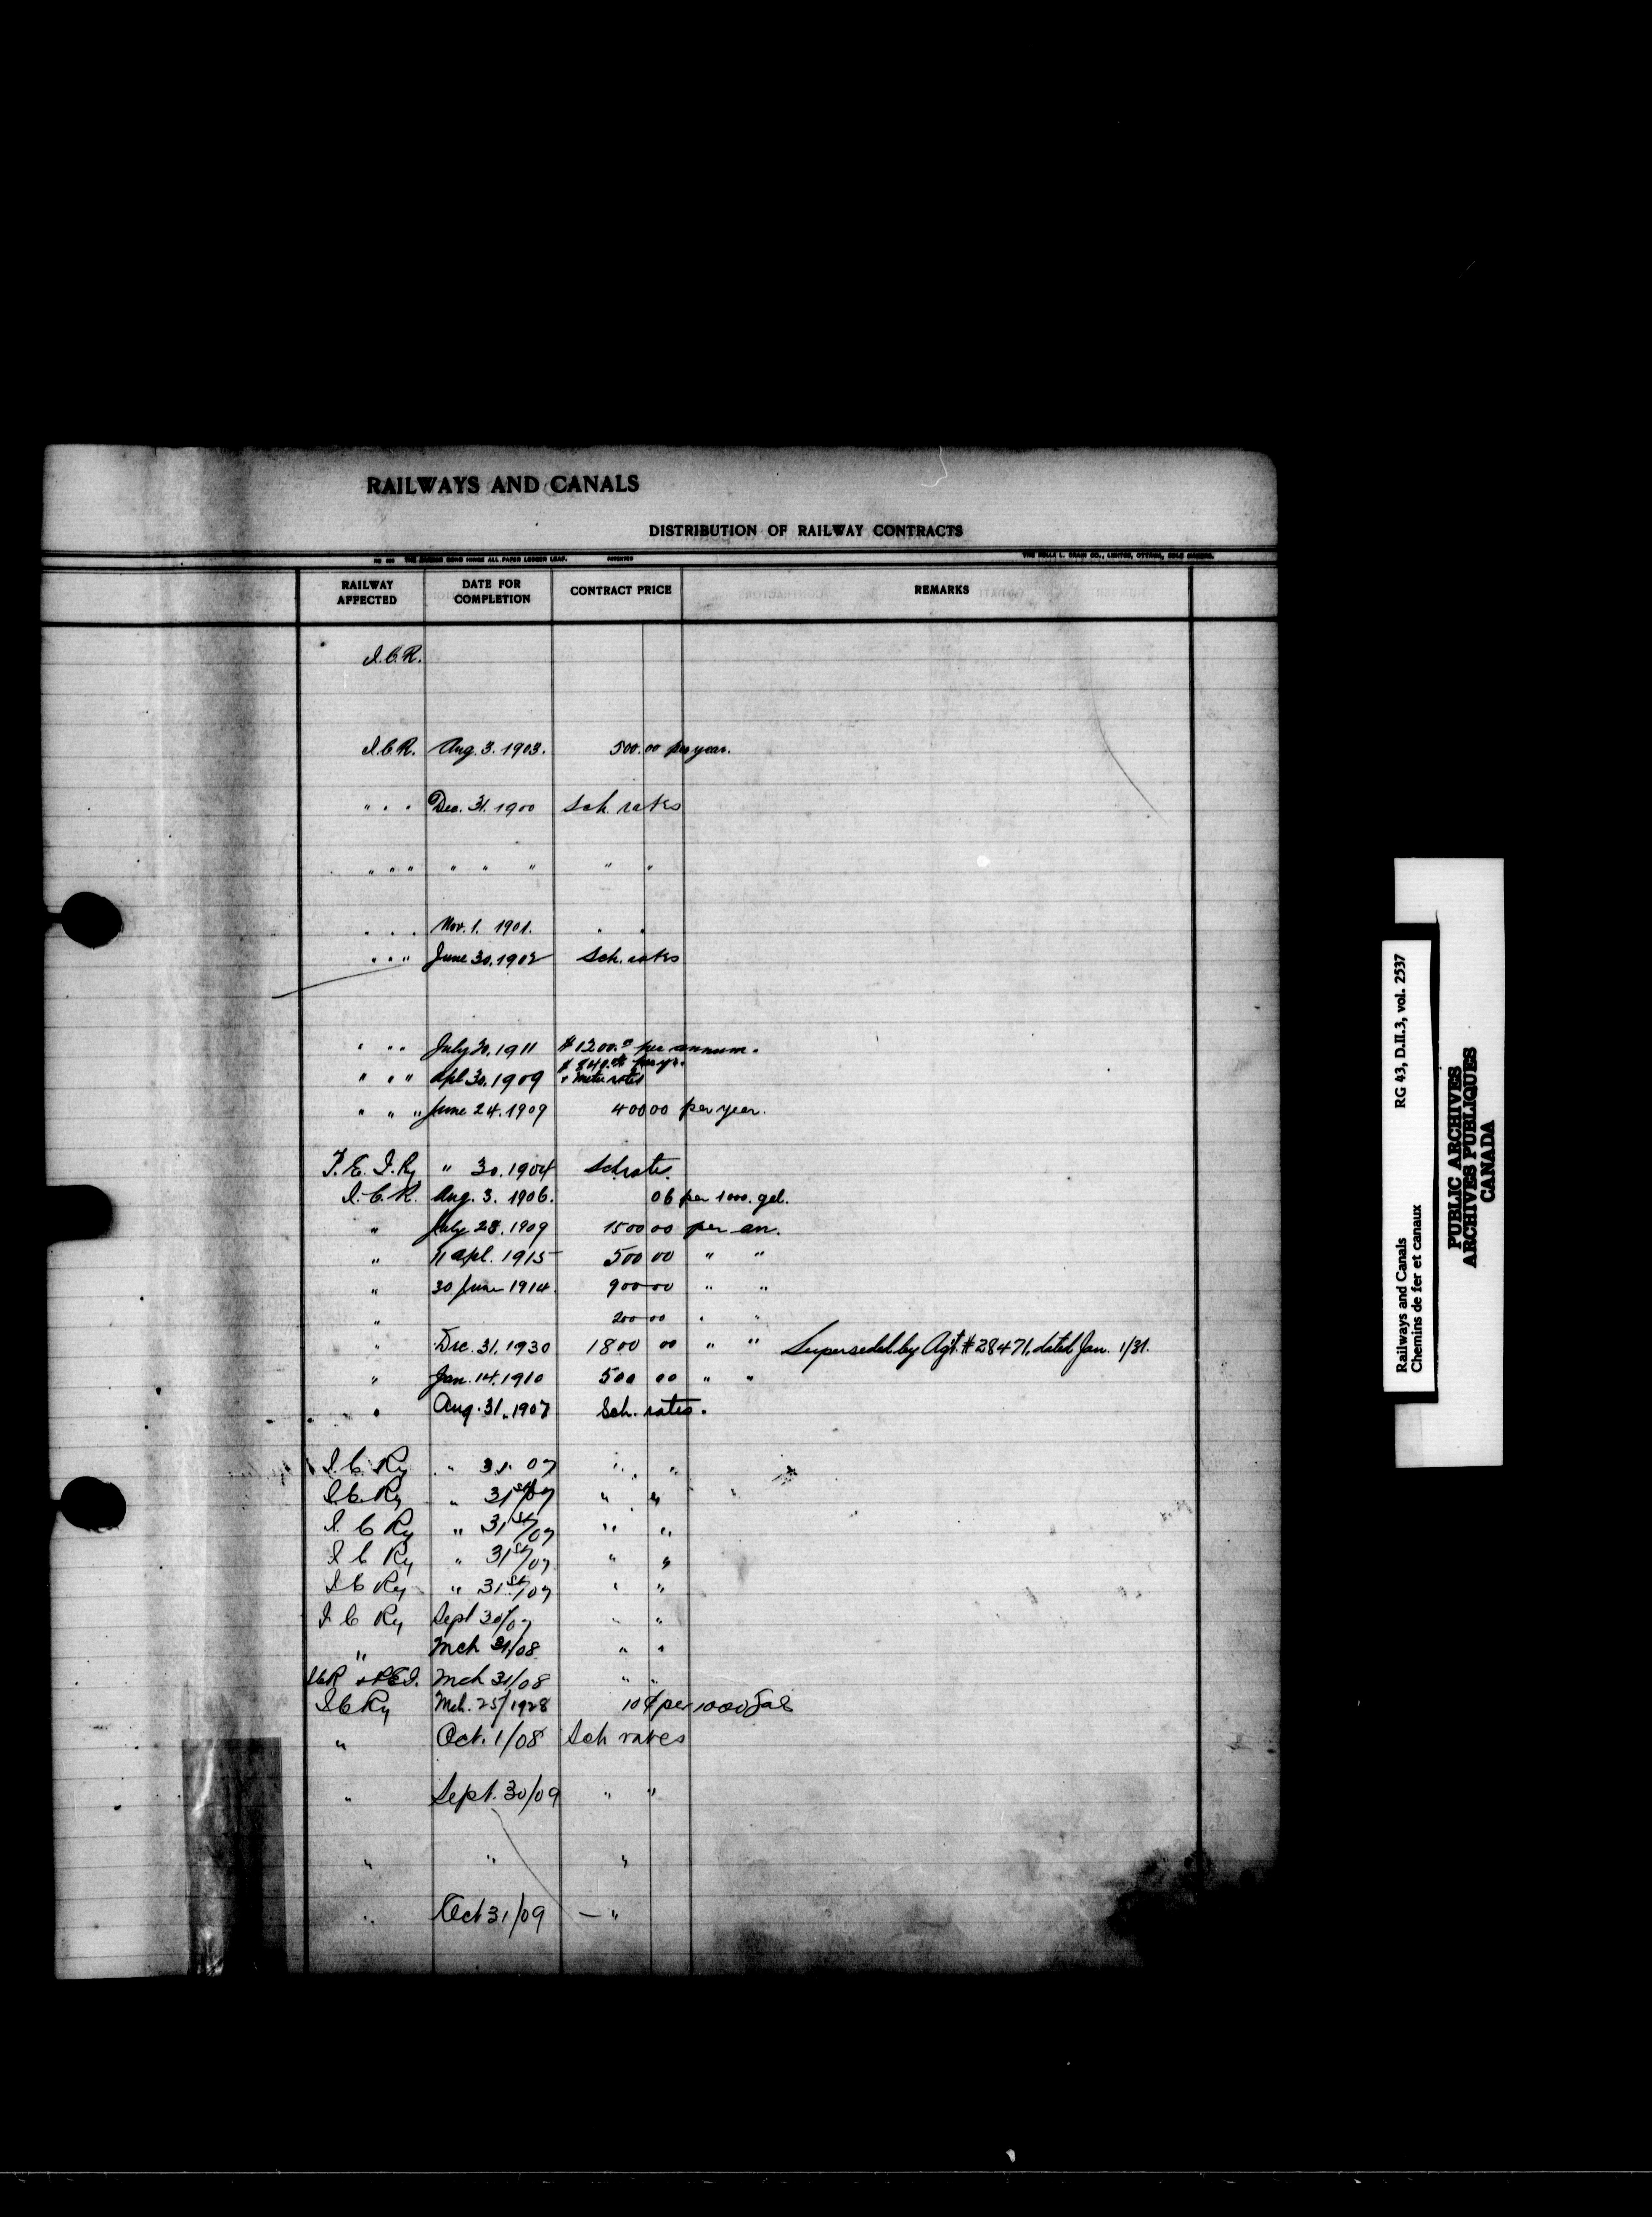 RAILWAYS AND CANALS
DISTRIBUTION OF RAILWAY CONTRACTS
RAILWAY AFFECTED DATE FOR COMPLETION CONTRACT PRICE REMARKS
I.C.R.
I.C.R. Aug. 3. 1903. 500.00 per year.
" " " Dec. 31. 1900 Sch. rates
" " " " " " " "
" " " Nov. 1. 1901. " "
" " " June 30. 1902 Sch. rates
" " " July 30. 1911 $1200.00 per annum.
" " " Apl 30. 1909 $240.00 per yr. + meter rates
" " " June 24. 1909 400 00 per year.
P.E.I. Ry " 30. 1904 Sch rates.
I.C.R. Aug. 3. 1906. 06 per 1000. gal.
" July 28. 1909 1500 00 per an.
" 11 Apl. 1915 500 00 " "
" 30 June 1914. 900 00 " "
" 200 00 " "
" Dec. 31. 1930 1800 00 " " Superseded by Agt. #28471, dated Jan. 1/31.
" Jan. 14. 1910 500 00 " "
" Aug. 31. 1907 Sch. rates.
I C Ry " 31. 07 " "
I C Ry " 31st/07 " "
I C Ry " 31st/07 " "
I C Ry " 31st/07 " "
I C Ry " 31st/07 " "
I C Ry Sept 30/07 " "
" Mch 31/08 " "
ICR + P.E.I. Mch 31/08 " "
I C Ry Mch. 25/1928 10¢ per 1000 Gal
" Oct. 1/08 Sch rates
" Sept. 30/09 " "
" " "
" Oct 31/09 — "
Railways and Canals RG 43, D.II.3, vol. 2537
Chemins de fer et canaux
PUBLIC ARCHIVES
ARCHIVES PUBLIQUES
CANADA